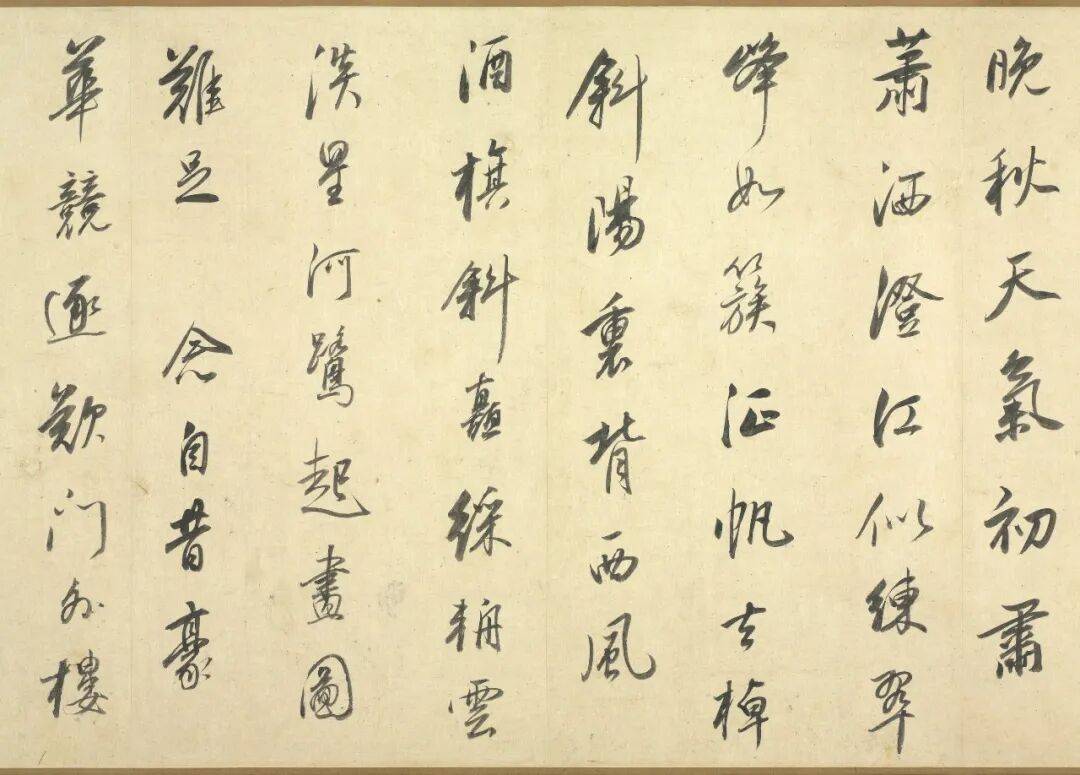 晚秋天氣初肅
蕭洒澄江似練翠
峰如簇征帆去棹
斜陽裏背西風
酒旗斜矗綵輈雲
淡星河鷺起畫圖
難足 念自昔豪
華競逐歎門外樓